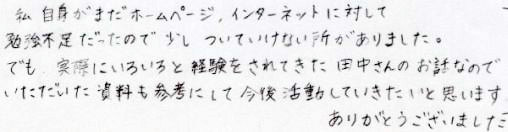 私自身がまだホームページ,インターネットに対して
勉強不足だったので少しついていけない所がありました。
でも、実際にいろいろと経験をされてきた田中さんのお話なので
いただいた資料も参考にして今後活動していきたいと思います
ありがとうございました